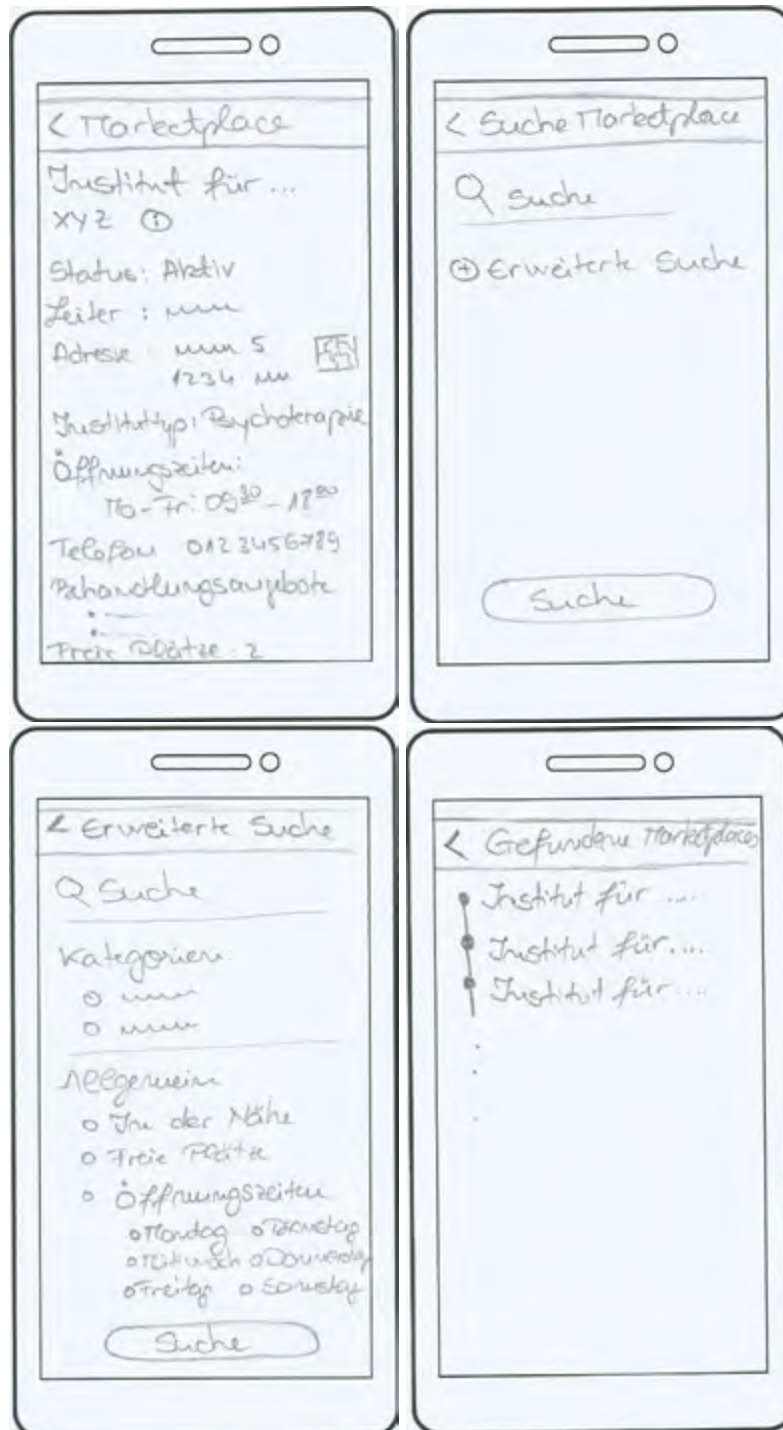 < Marketplace
Institut für ...
XYZ ⓘ
Status: Aktiv
Leiter :
Adresse 5
1234
Instituttyp: Psychoterapie
Öffnungszeiten:
Mo-Fr: 09 30 - 18 00
Telefon 0123456789
Behandlungsangebote
Freie Plätze: 2
< Suche Marketplace
Suche
⊕ Erweiterte Suche
Suche
< Erweiterte Suche
Suche
Kategorien:
Allgemein
o In der Nähe
o Freie Plätze
o Öffnungszeiten
o Montag o Dienstag
o Mittwoch o Donnerstag
o Freitag o Samstag
Suche
< Gefundene Marketplaces
• Institut für .....
• Institut für ....
• Institut für ....